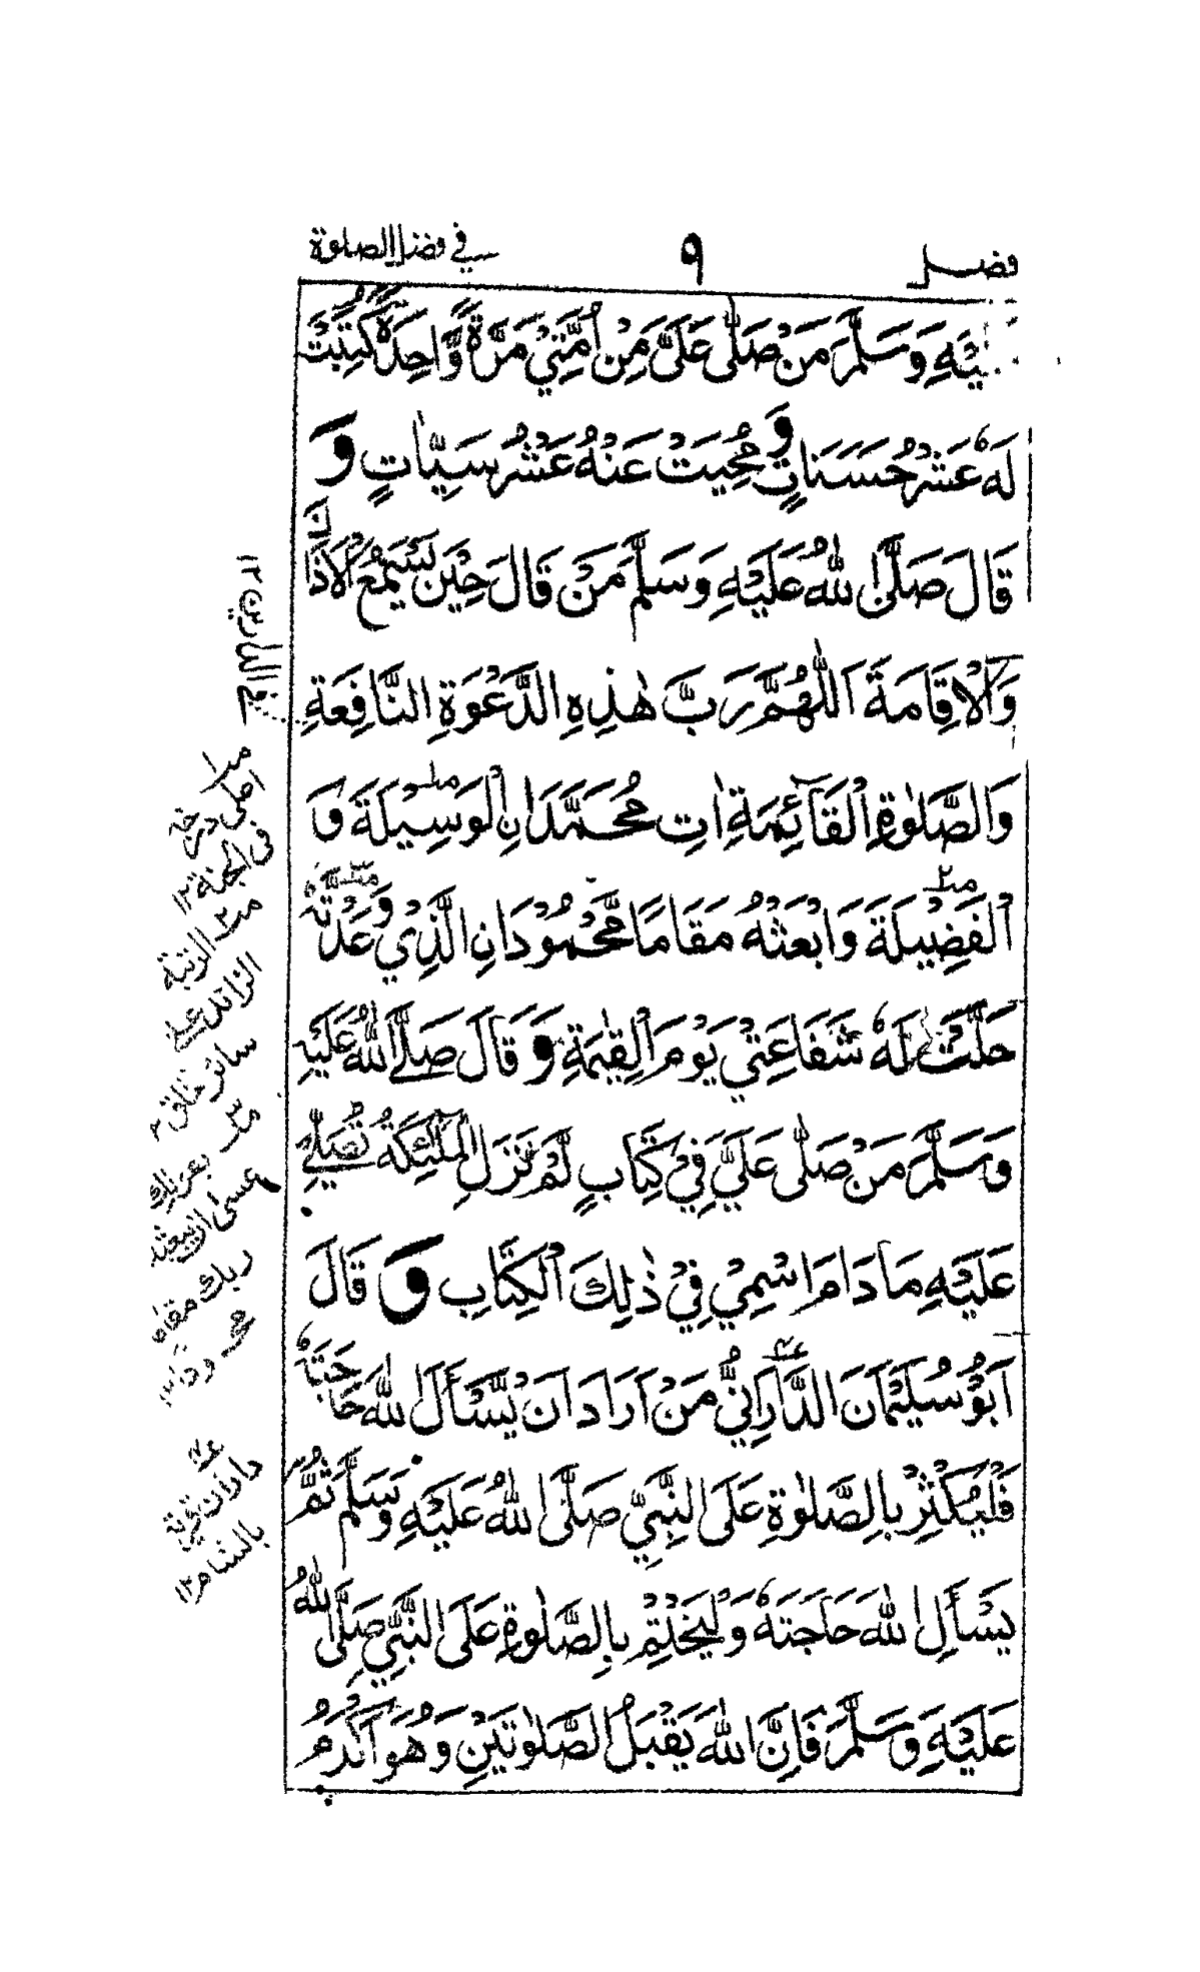 فصل ٩ في فضل الصلوة
عَلَيْهِ وَسَلَّمَ مَنْ صَلَّى عَلَيَّ مِنْ اُمَّتِيْ مَرَّةً وَّاحِدَةً كُتِبَتْ
لَهٗ عَشْرُ حَسَنَاتٍ وَّ مُحِيَتْ عَنْهُ عَشْرُ سَيِّاٰتٍ وَ
قَالَ صَلَّى اللّٰهُ عَلَيْهِ وَسَلَّمَ مَنْ قَالَ حِيْنَ يَسْمَعُ الْاَذَانَ
وَالْاِقَامَةَ اَللّٰهُمَّ رَبَّ هٰذِهِ الدَّعْوَةِ النَّافِعَةِ
وَالصَّلٰوةِ الْقَآئِمَةِ اٰتِ مُحَمَّدَانِ الْوَسِيْلَةَ وَ
الْفَضِيْلَةَ وَابْعَثْهُ مَقَامًا مَّحْمُوْدَانِ الَّذِيْ وَعَدْتَّهٗ
حَلَّتْ لَهٗ شَفَاعَتِيْ يَوْمَ الْقِيٰمَةِ وَ قَالَ صَلَّى اللّٰهُ عَلَيْهِ
وَسَلَّمَ مَنْ صَلّٰى عَلَيَّ فِيْ كِتَابٍ لَّمْ تَزَلِ الْمَلٰٓئِكَةُ تُصَلِّيْ
عَلَيْهِ مَا دَامَ اسْمِيْ فِيْ ذٰلِكَ الْكِتَابِ وَ قَالَ
اَبُوْ سُلَيْمَانَ الدَّارَانِيُّ مَنْ اَرَادَ اَنْ يَّسْأَلَ اللّٰهَ حَاجَتَهٗ
فَلْيُكْثِرْ بِالصَّلٰوةِ عَلَى النَّبِيِّ صَلَّى اللّٰهُ عَلَيْهِ وَسَلَّمَ ثُمَّ
يَسْأَلِ اللّٰهَ حَاجَتَهٗ وَلْيَخْتِمْ بِالصَّلٰوةِ عَلَى النَّبِيِّ صَلَّى اللّٰهُ
عَلَيْهِ وَسَلَّمَ فَاِنَّ اللّٰهَ يَقْبَلُ الصَّلٰوتَيْنِ وَهُوَ اَكْرَمُ
في الدارين ١٢
اعلى درجة
في الجنة ١٢
الرتبة
الزائدة على
سائر خلق
عسى ان يبعثك
ربك مقاما
محمودا
داران قرية
بالشام ١٢